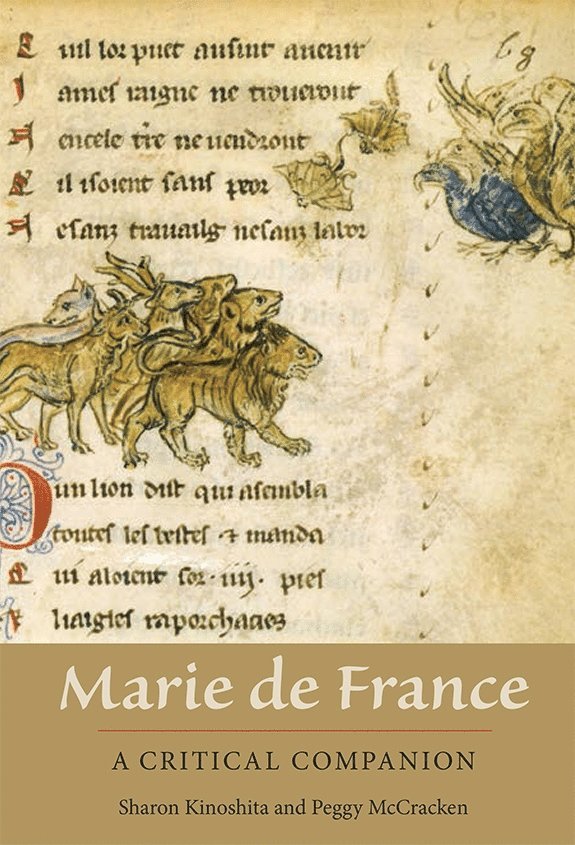 uil lor puet ausint auenir
J ames ne troueront
encele tre ne uendront
il isoient sans peor
esanz trauailg nesanz labor
D un lion dist qui asembla
toutes les bestes ⁊ manda
ui aloient sor .iiij. pies
liaigles raporchacies
Marie de France
A CRITICAL COMPANION
Sharon Kinoshita and Peggy McCracken